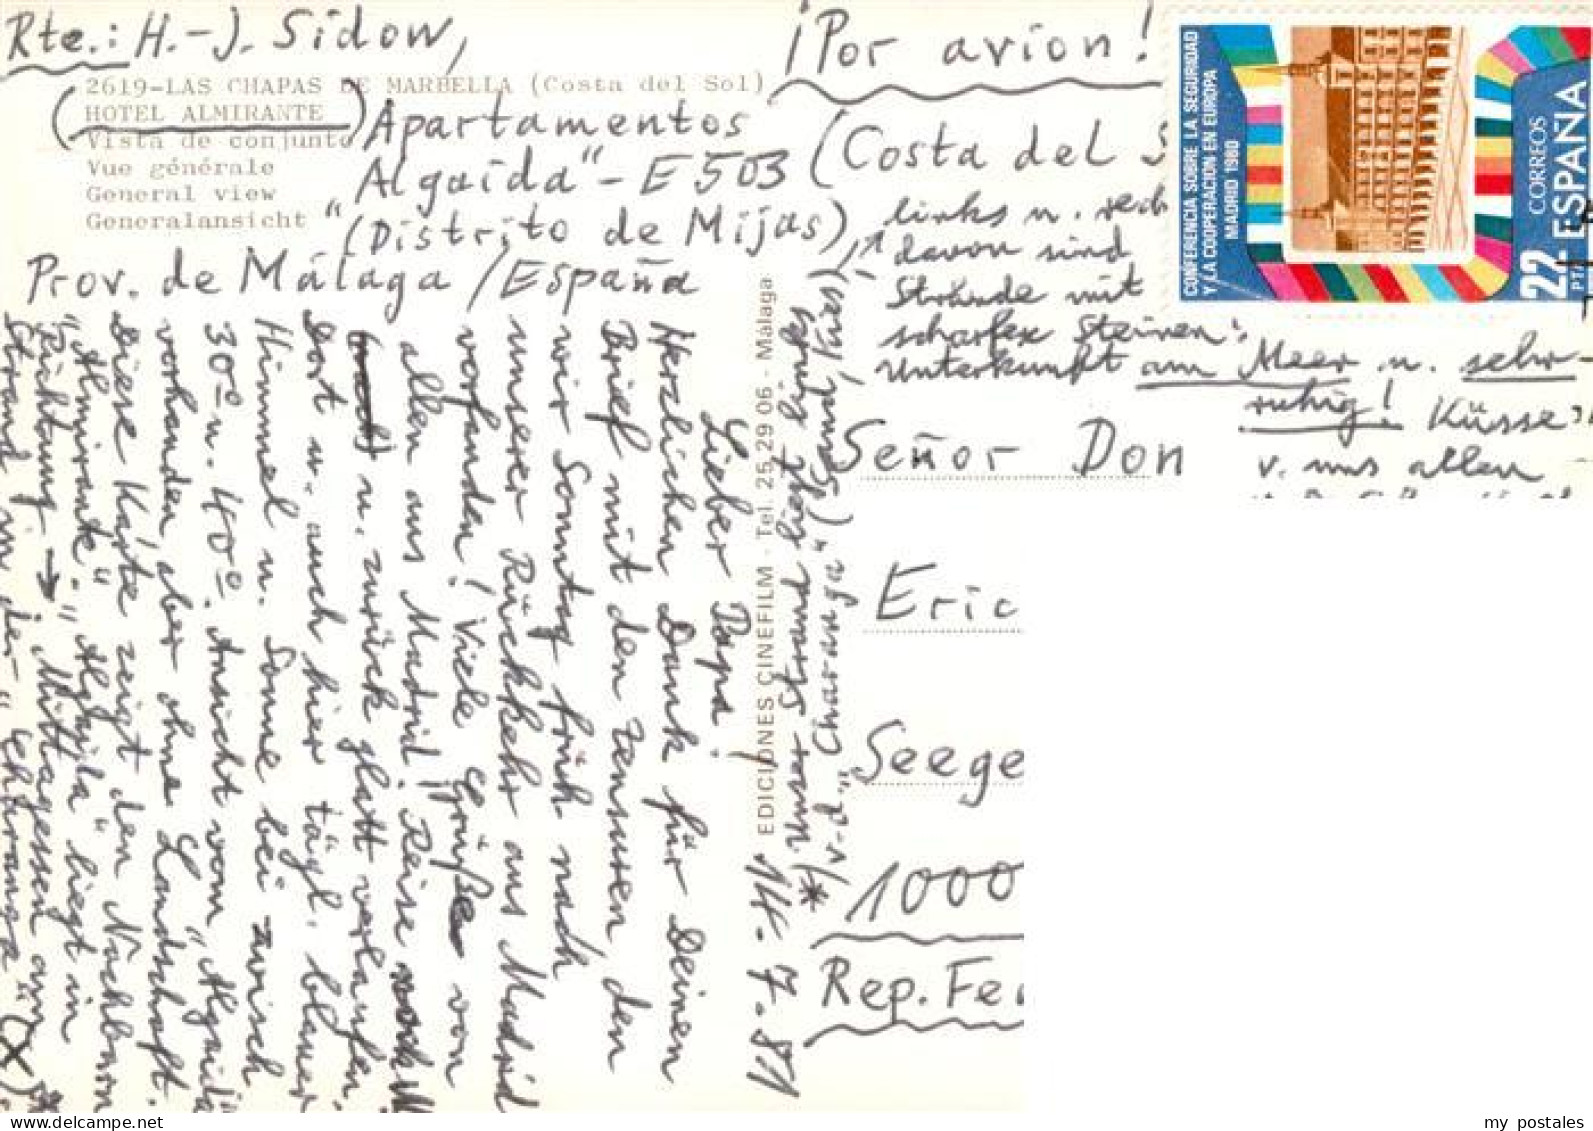 Rte.: H.-J. Sidow,
2619-LAS CHAPAS DE MARBELLA (Costa del Sol)
(HOTEL ALMIRANTE)
Vista de conjunto
Vue générale
General view
Generalansicht
Apartamentos
"Algaida" - E 503
(Distrito de Mijas),
Prov. de Málaga / España
¡Por avion!
(Costa del S
CONFERENCIA SOBRE LA SEGURIDAD
Y LA COOPERACION EN EUROPA
MADRID 1980
CORREOS
ESPAÑA
22
PTA
14.7.81
Lieber Papa!
Herzlichen Dank für Deinen
Brief mit den Zensuren, den
wir Sonntag früh nach
unserer Rückkehr aus Madrid
vorfanden! Viele Grüße von
allen aus Madrid! Reise
u. zurück glatt verlaufen.
Dort u. auch hier tägl. blauer
Himmel u. Sonne bei zwisch
30º u. 40º. Ansicht vom "Algaida"
vorhanden, aber ohne Landschaft.
Diese Karte zeigt den Nachbarn
"Almirante". "Algaida" liegt in
Richtung → Mittagessen am
Strand in der "Charanga" (x)
EDICIONES CINEFILM - Tel. 25 29 06 - Málaga
* Unser Strand liegt links
v. d. "Charanga" (Sand, Kies),
links u. rech
davon sind
Strände mit
scharfen Steinen.
Unterkunft am Meer u. sehr
ruhig! Küsse
v. uns allen
Señor Don
Eric
Seege
1000
Rep. Fe
my postales